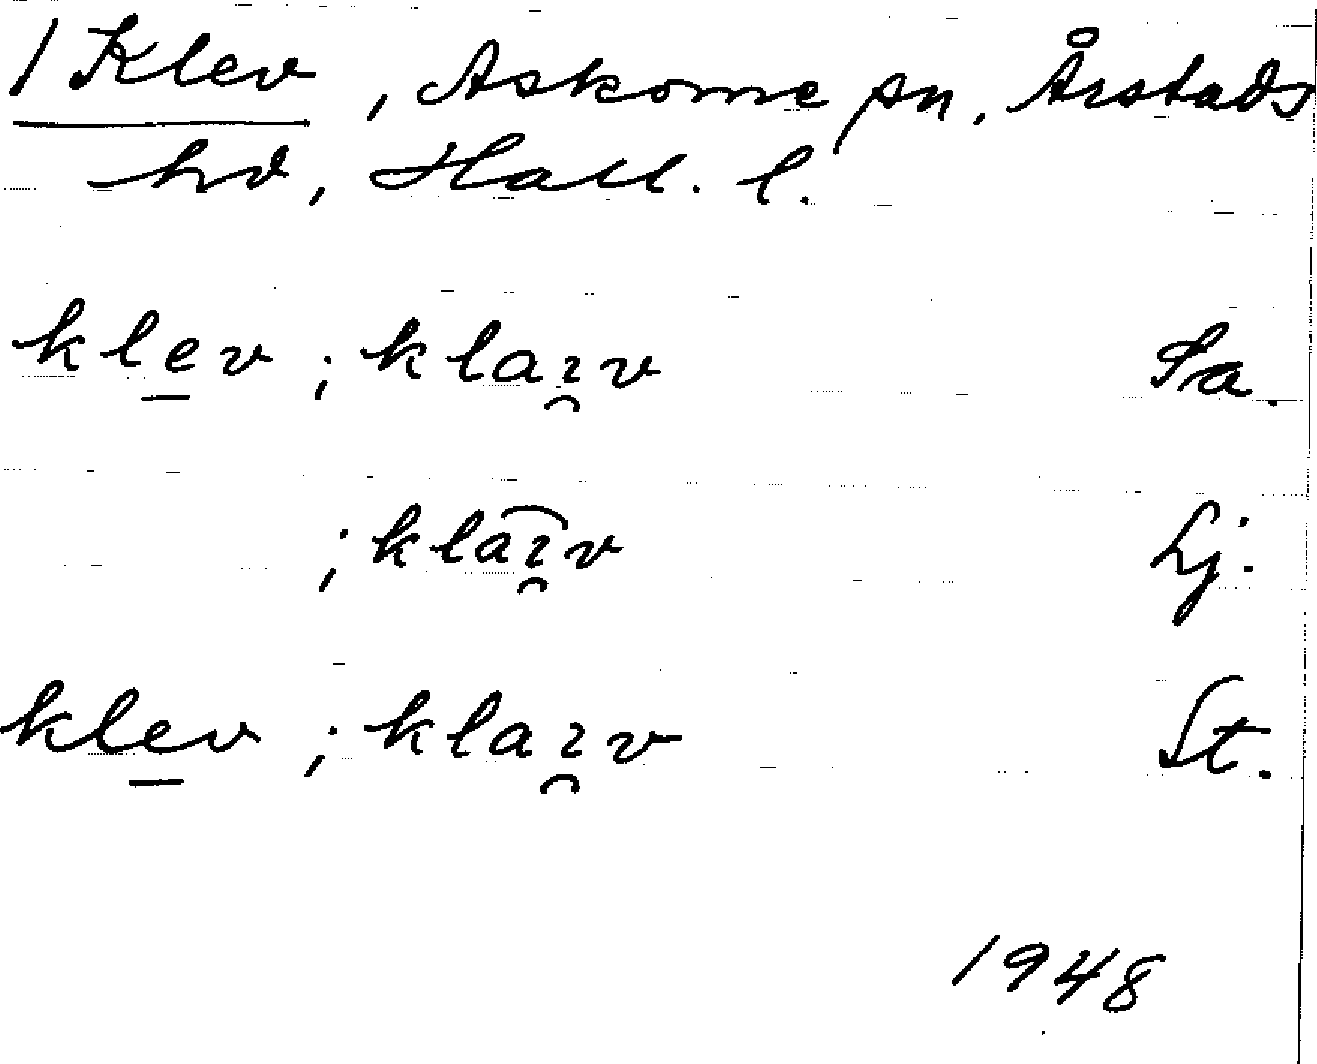 1 Klev, Askome sn, Årstads
hd, Hall. l.
klev ; klaɪ̯v Sa.
; kla͡ɪ̯v Lj.
klev ; klaɪ̯v St.
1948